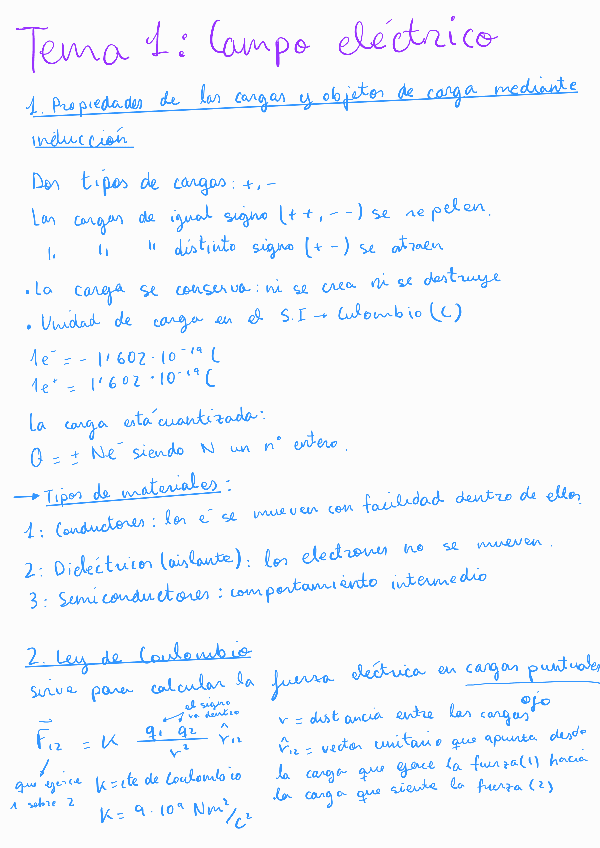 Tema 1: Campo eléctrico
1. Propiedades de las cargas y objetos de carga mediante
inducción
Dos tipos de cargas: +, -
Las cargas de igual signo (++, --) se repelen.
" " " distinto signo (+ -) se atraen
• La carga se conserva: ni se crea ni se destruye
• Unidad de carga en el S.I → Culombio (C)
1e⁻ = - 1'602 · 10⁻¹⁹ C
1e⁺ = 1'602 · 10⁻¹⁹ C
La carga está cuantizada:
Q = ± Ne⁻ siendo N un nº entero.
→ Tipos de materiales:
1: Conductores: los e⁻ se mueven con facilidad dentro de ellos
2: Dieléctricos (aislante): los electrones no se mueven.
3: Semiconductores: comportamiento intermedio
2. Ley de Coulombio
sirve para calcular la fuerza eléctrica en cargas puntuales
ojo
el signo
va dentro
F⃗₁₂ = K q₁ q₂ / r² r̂₁₂
que ejerce
1 sobre 2
K = cte de Coulombio
K = 9 · 10⁹ Nm²/C²
r = distancia entre las cargas
r̂₁₂ = vector unitario que apunta desde
la carga que ejerce la fuerza (1) hacia
la carga que siente la fuerza (2)